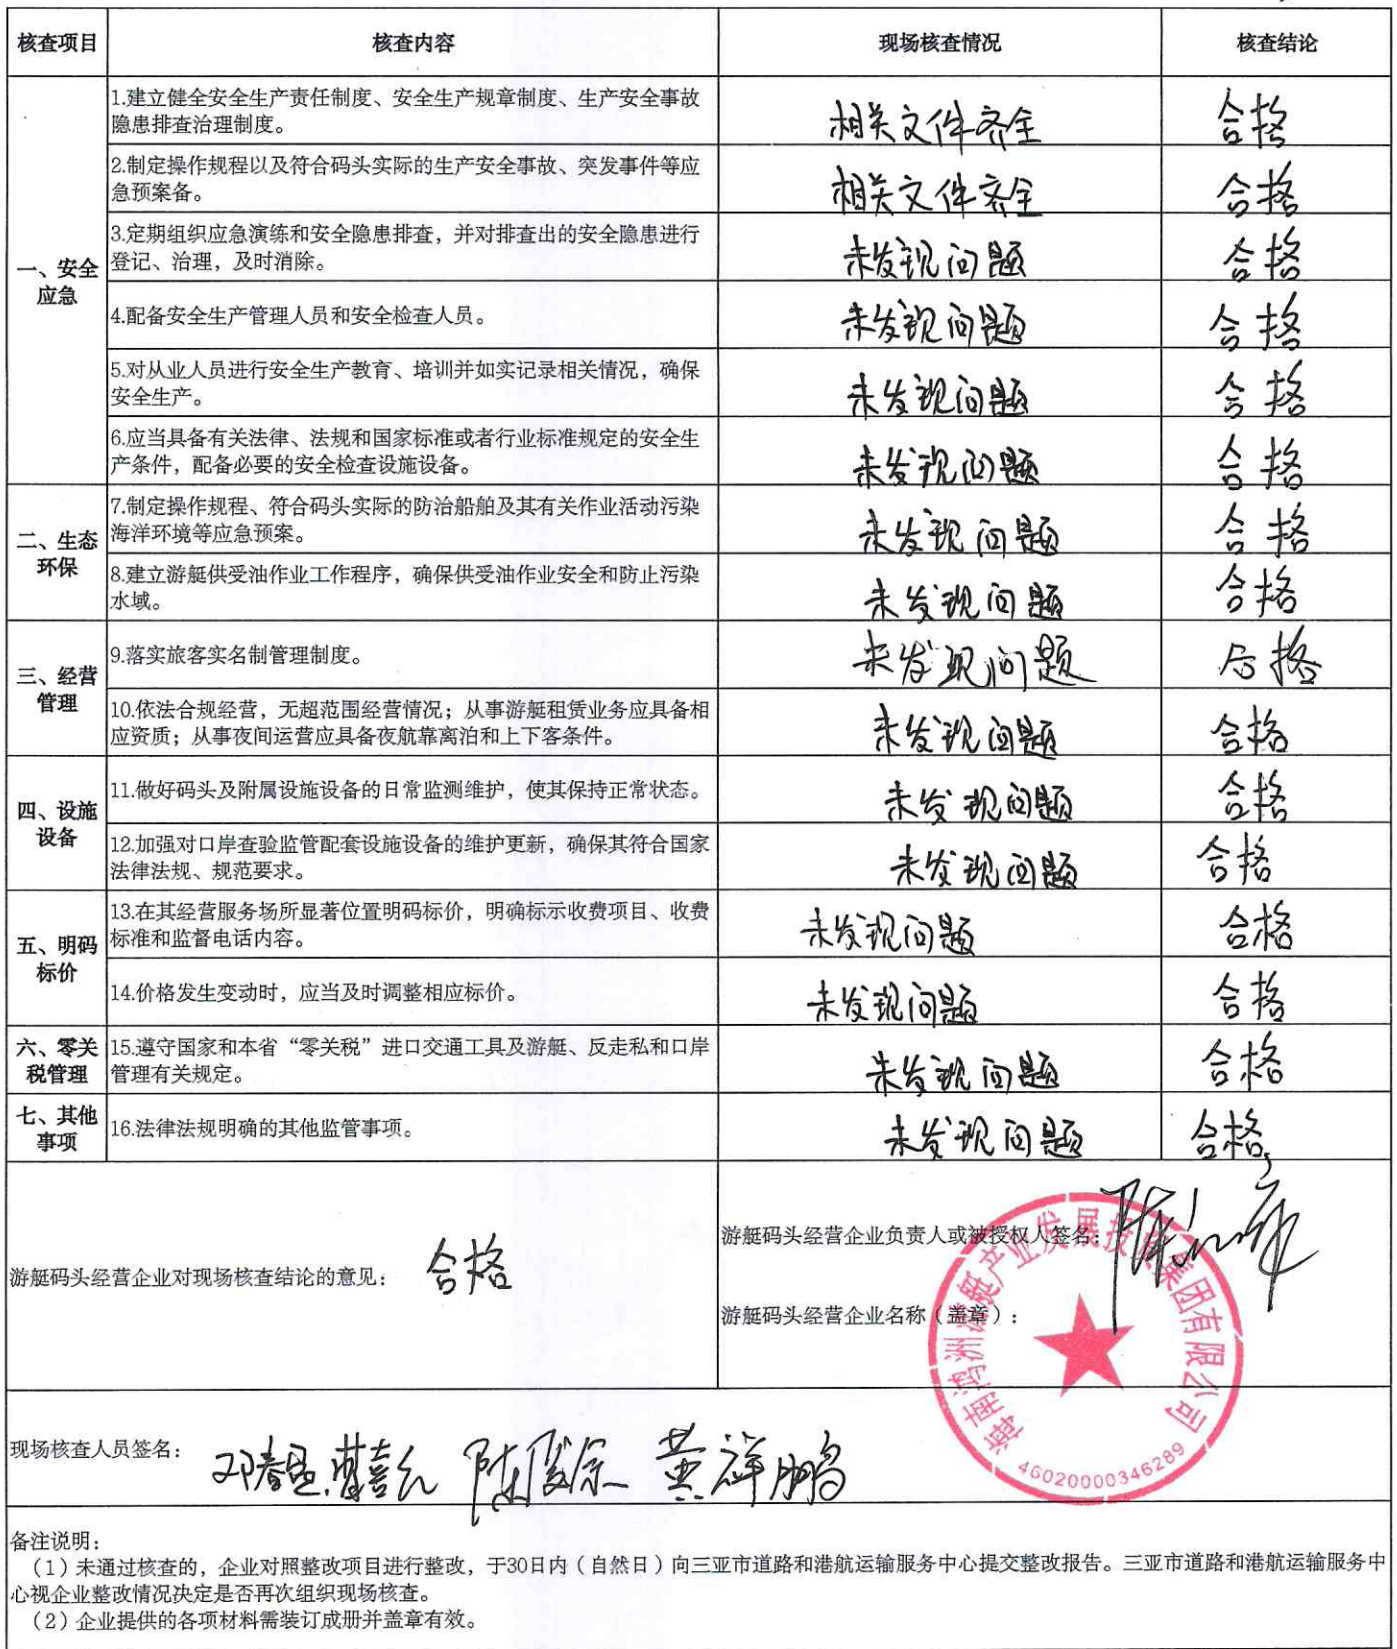 核查项目 核查内容 现场核查情况 核查结论
一、安全
应急
1.建立健全安全生产责任制度、安全生产规章制度、生产安全事故
隐患排查治理制度。
相关文件齐全 合格
2.制定操作规程以及符合码头实际的生产安全事故、突发事件等应
急预案备。
相关文件齐全 合格
3.定期组织应急演练和安全隐患排查，并对排查出的安全隐患进行
登记、治理，及时消除。
未发现问题 合格
4.配备安全生产管理人员和安全检查人员。
未发现问题 合格
5.对从业人员进行安全生产教育、培训并如实记录相关情况，确保
安全生产。
未发现问题 合格
6.应当具备有关法律、法规和国家标准或者行业标准规定的安全生
产条件，配备必要的安全检查设施设备。
未发现问题 合格
二、生态
环保
7.制定操作规程、符合码头实际的防治船舶及其有关作业活动污染
海洋环境等应急预案。
未发现问题 合格
8.建立游艇供受油作业工作程序，确保供受油作业安全和防止污染
水域。
未发现问题 合格
三、经营
管理
9.落实旅客实名制管理制度。
未发现问题 合格
10.依法合规经营，无超范围经营情况；从事游艇租赁业务应具备相
应资质；从事夜间运营应具备夜航靠离泊和上下客条件。
未发现问题 合格
四、设施
设备
11.做好码头及附属设施设备的日常监测维护，使其保持正常状态。
未发现问题 合格
12.加强对口岸查验监管配套设施设备的维护更新，确保其符合国家
法律法规、规范要求。
未发现问题 合格
五、明码
标价
13.在其经营服务场所显著位置明码标价，明确标示收费项目、收费
标准和监督电话内容。
未发现问题 合格
14.价格发生变动时，应当及时调整相应标价。
未发现问题 合格
六、零关
税管理
15.遵守国家和本省“零关税”进口交通工具及游艇、反走私和口岸
管理有关规定。
未发现问题 合格
七、其他
事项
16.法律法规明确的其他监管事项。
未发现问题 合格
游艇码头经营企业对现场核查结论的意见： 合格
游艇码头经营企业负责人或被授权人签名：
游艇码头经营企业名称（盖章）：
海南鸿洲游艇产业发展投资集团有限公司
46020000346289
现场核查人员签名： 黄祥鹏
备注说明：
（1）未通过核查的，企业对照整改项目进行整改，于30日内（自然日）向三亚市道路和港航运输服务中心提交整改报告。三亚市道路和港航运输服务中
心视企业整改情况决定是否再次组织现场核查。
（2）企业提供的各项材料需装订成册并盖章有效。